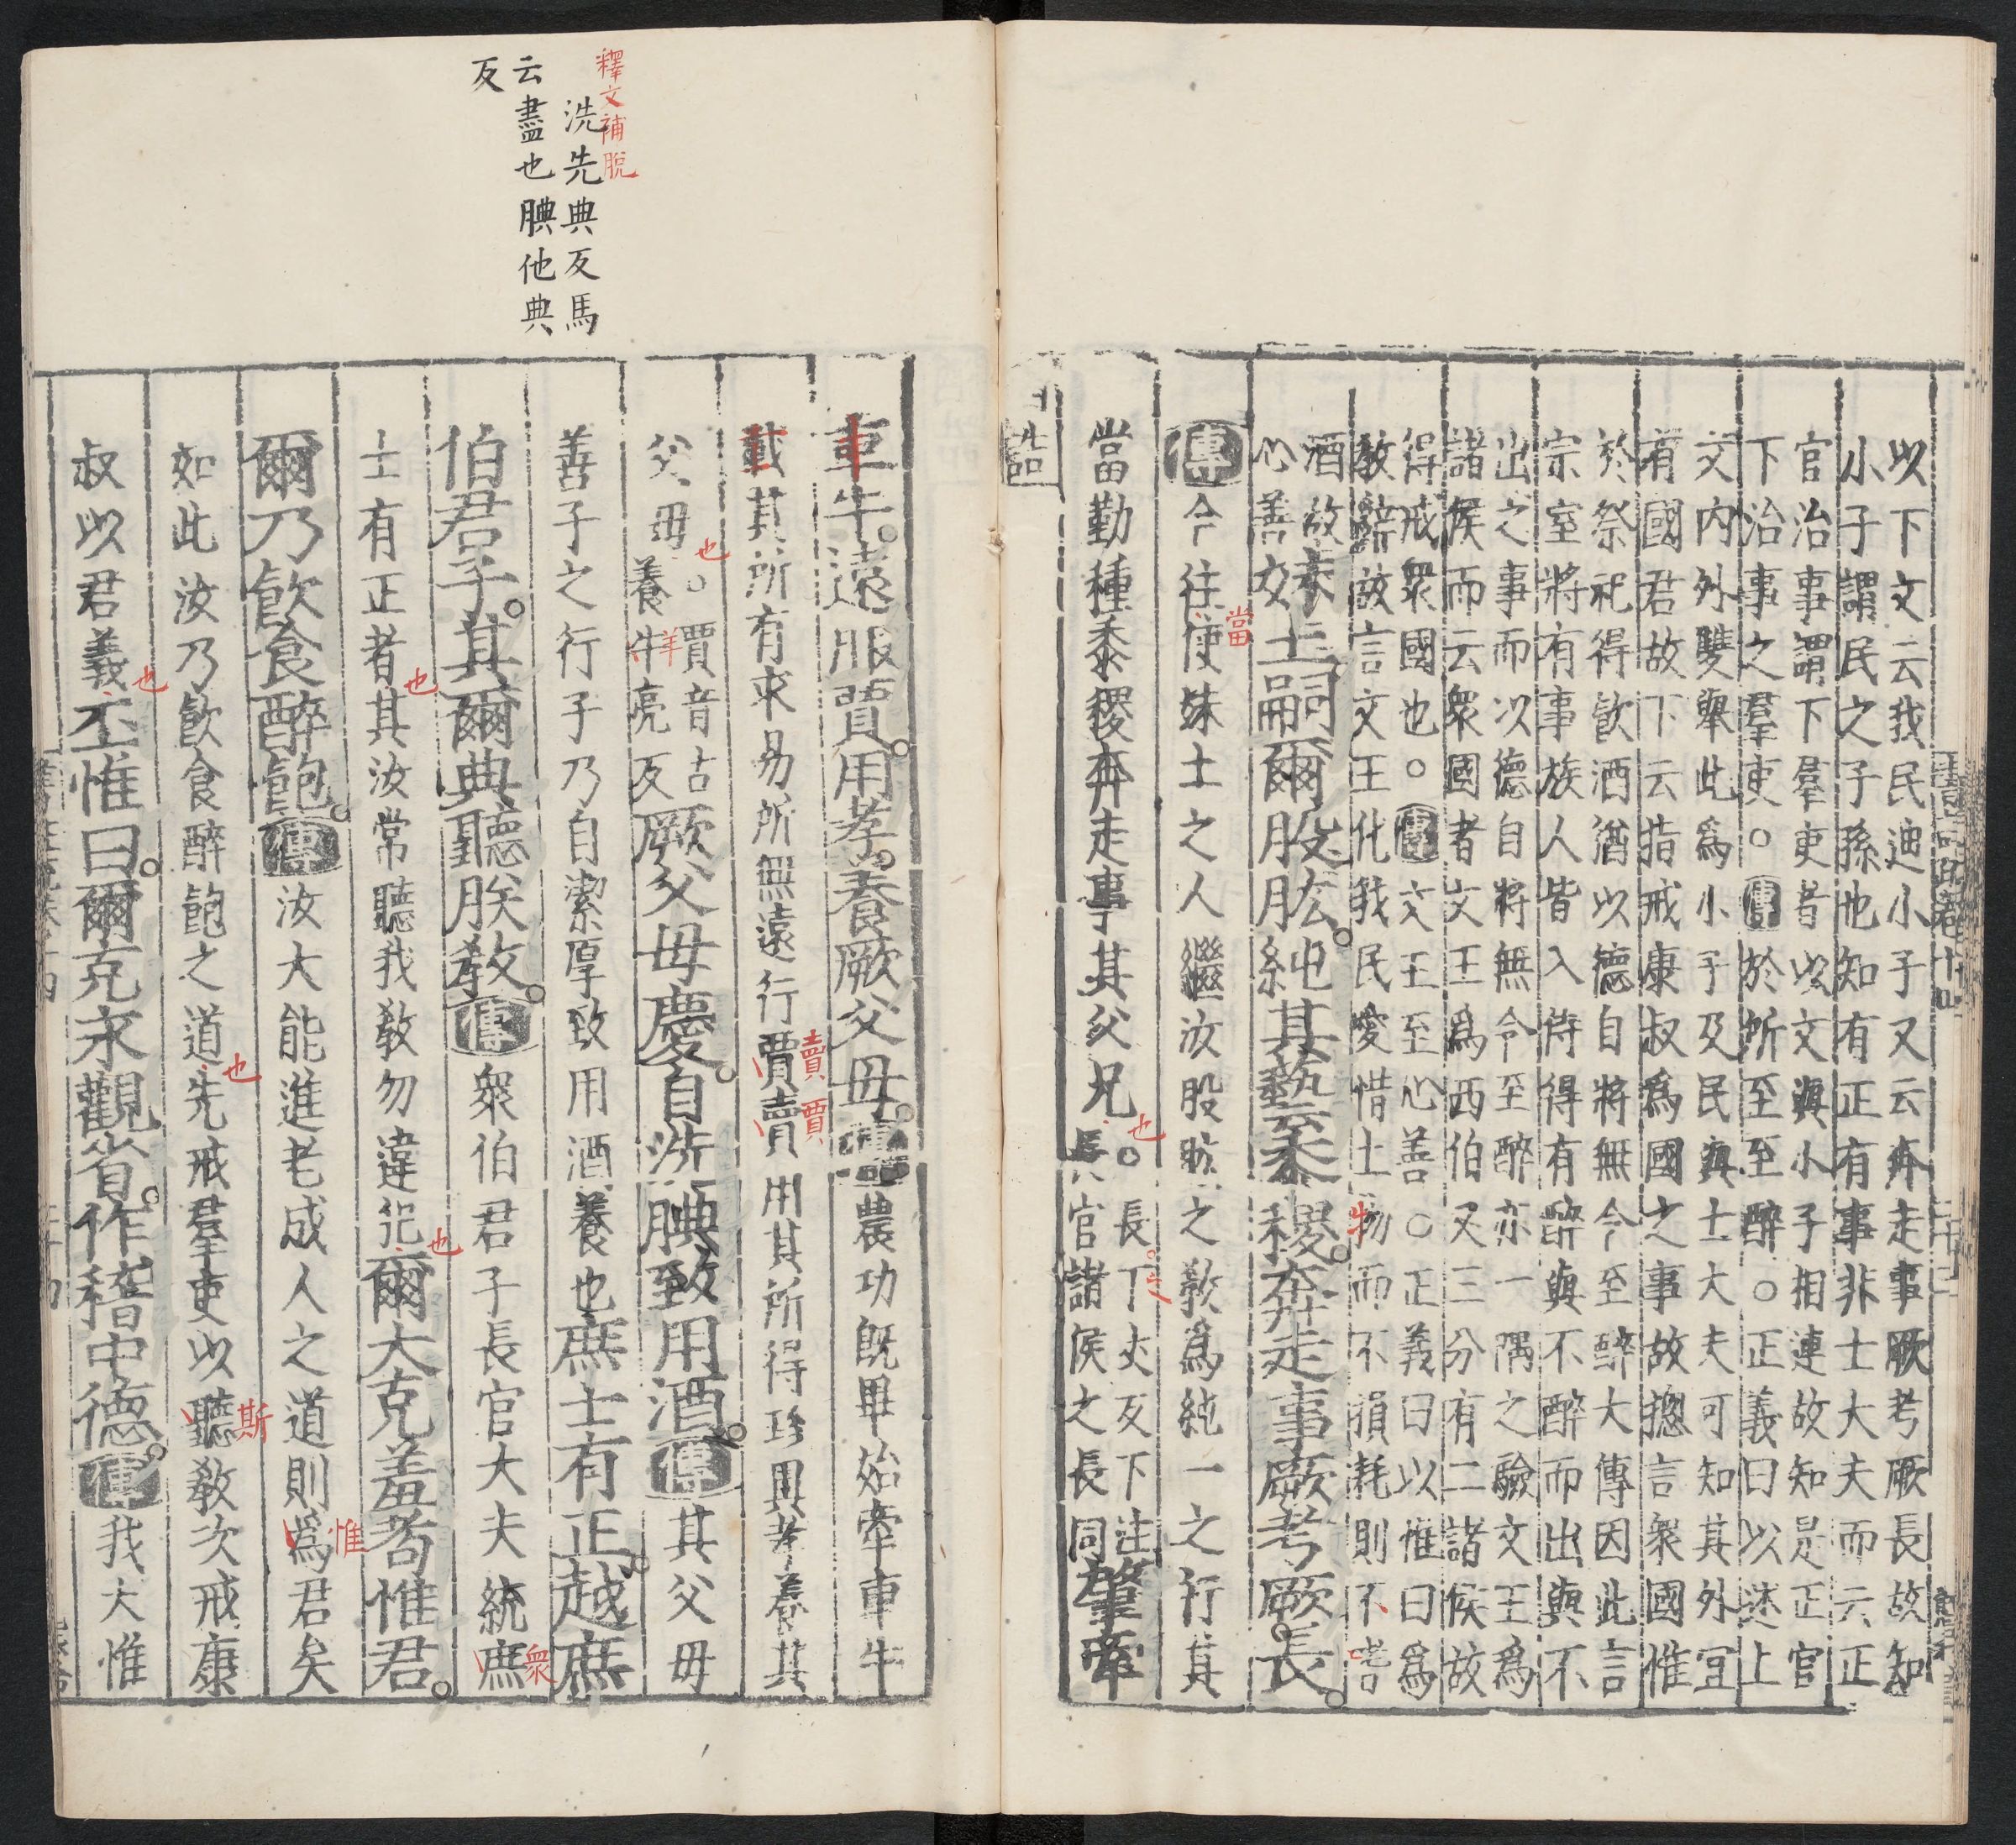 以下文云我民迪小子又云奔走事厥考厥長故知
小子謂民之子孫也知有正有事非士大夫而云正
官治事謂下羣吏者以文與小子相連故知是正官
下治事之羣吏○傳於所至至醉○正義曰以述上
文內外雙舉此爲小子及民與士大夫可知其外宜
有國君故下云指戒康叔爲國之事故揔言衆國惟
於祭祀得飲酒猶以德自將無令至醉大傳因此言
宗室將有事族人皆入侍得有醉與不醉而出與不
出之事而以德自將無令至醉亦一隅之驗文王爲
諸侯而云衆國者文王爲西伯又三分有二諸侯故
得戒衆國也○傳文王至心善○正義曰以惟曰爲
教辭故言文王化我民愛惜土物而不損耗則不嗜
酒故
心善
妹土嗣爾股肱純其藝黍稷奔走事厥考厥長
傳今往使妹土之人繼汝股肱之教爲純一之行其
當
當勤種黍稷奔走事其父兄○
也
長丁丈反下注
長官諸侯之長同
肇牽
誥
車牛遠服賈用孝養厥父母傳農功既畢始牽車牛
載其所有求易所無遠行賈賣用其所得珍異孝養其
賣賈
父母○
也
賈音古
養牛亮反
羊
厥父母慶自洗腆致用酒傳其父母
善子之行子乃自潔厚致用酒養也庶士有正越庶
伯君子其爾典聽朕教傳衆伯君子長官大夫統庶
衆
士有正者其汝常聽我教勿違犯爾大克羞耇惟君
也
也
爾乃飲食醉飽傳汝大能進老成人之道則爲君矣
惟
如此汝乃飲食醉飽之道先戒羣吏以聽教次戒康
也
斯
叔以君義丕惟曰爾克永觀省作稽中德傳我大惟
也
釋文補脫
洗先典反馬
云盡也腆他典
反